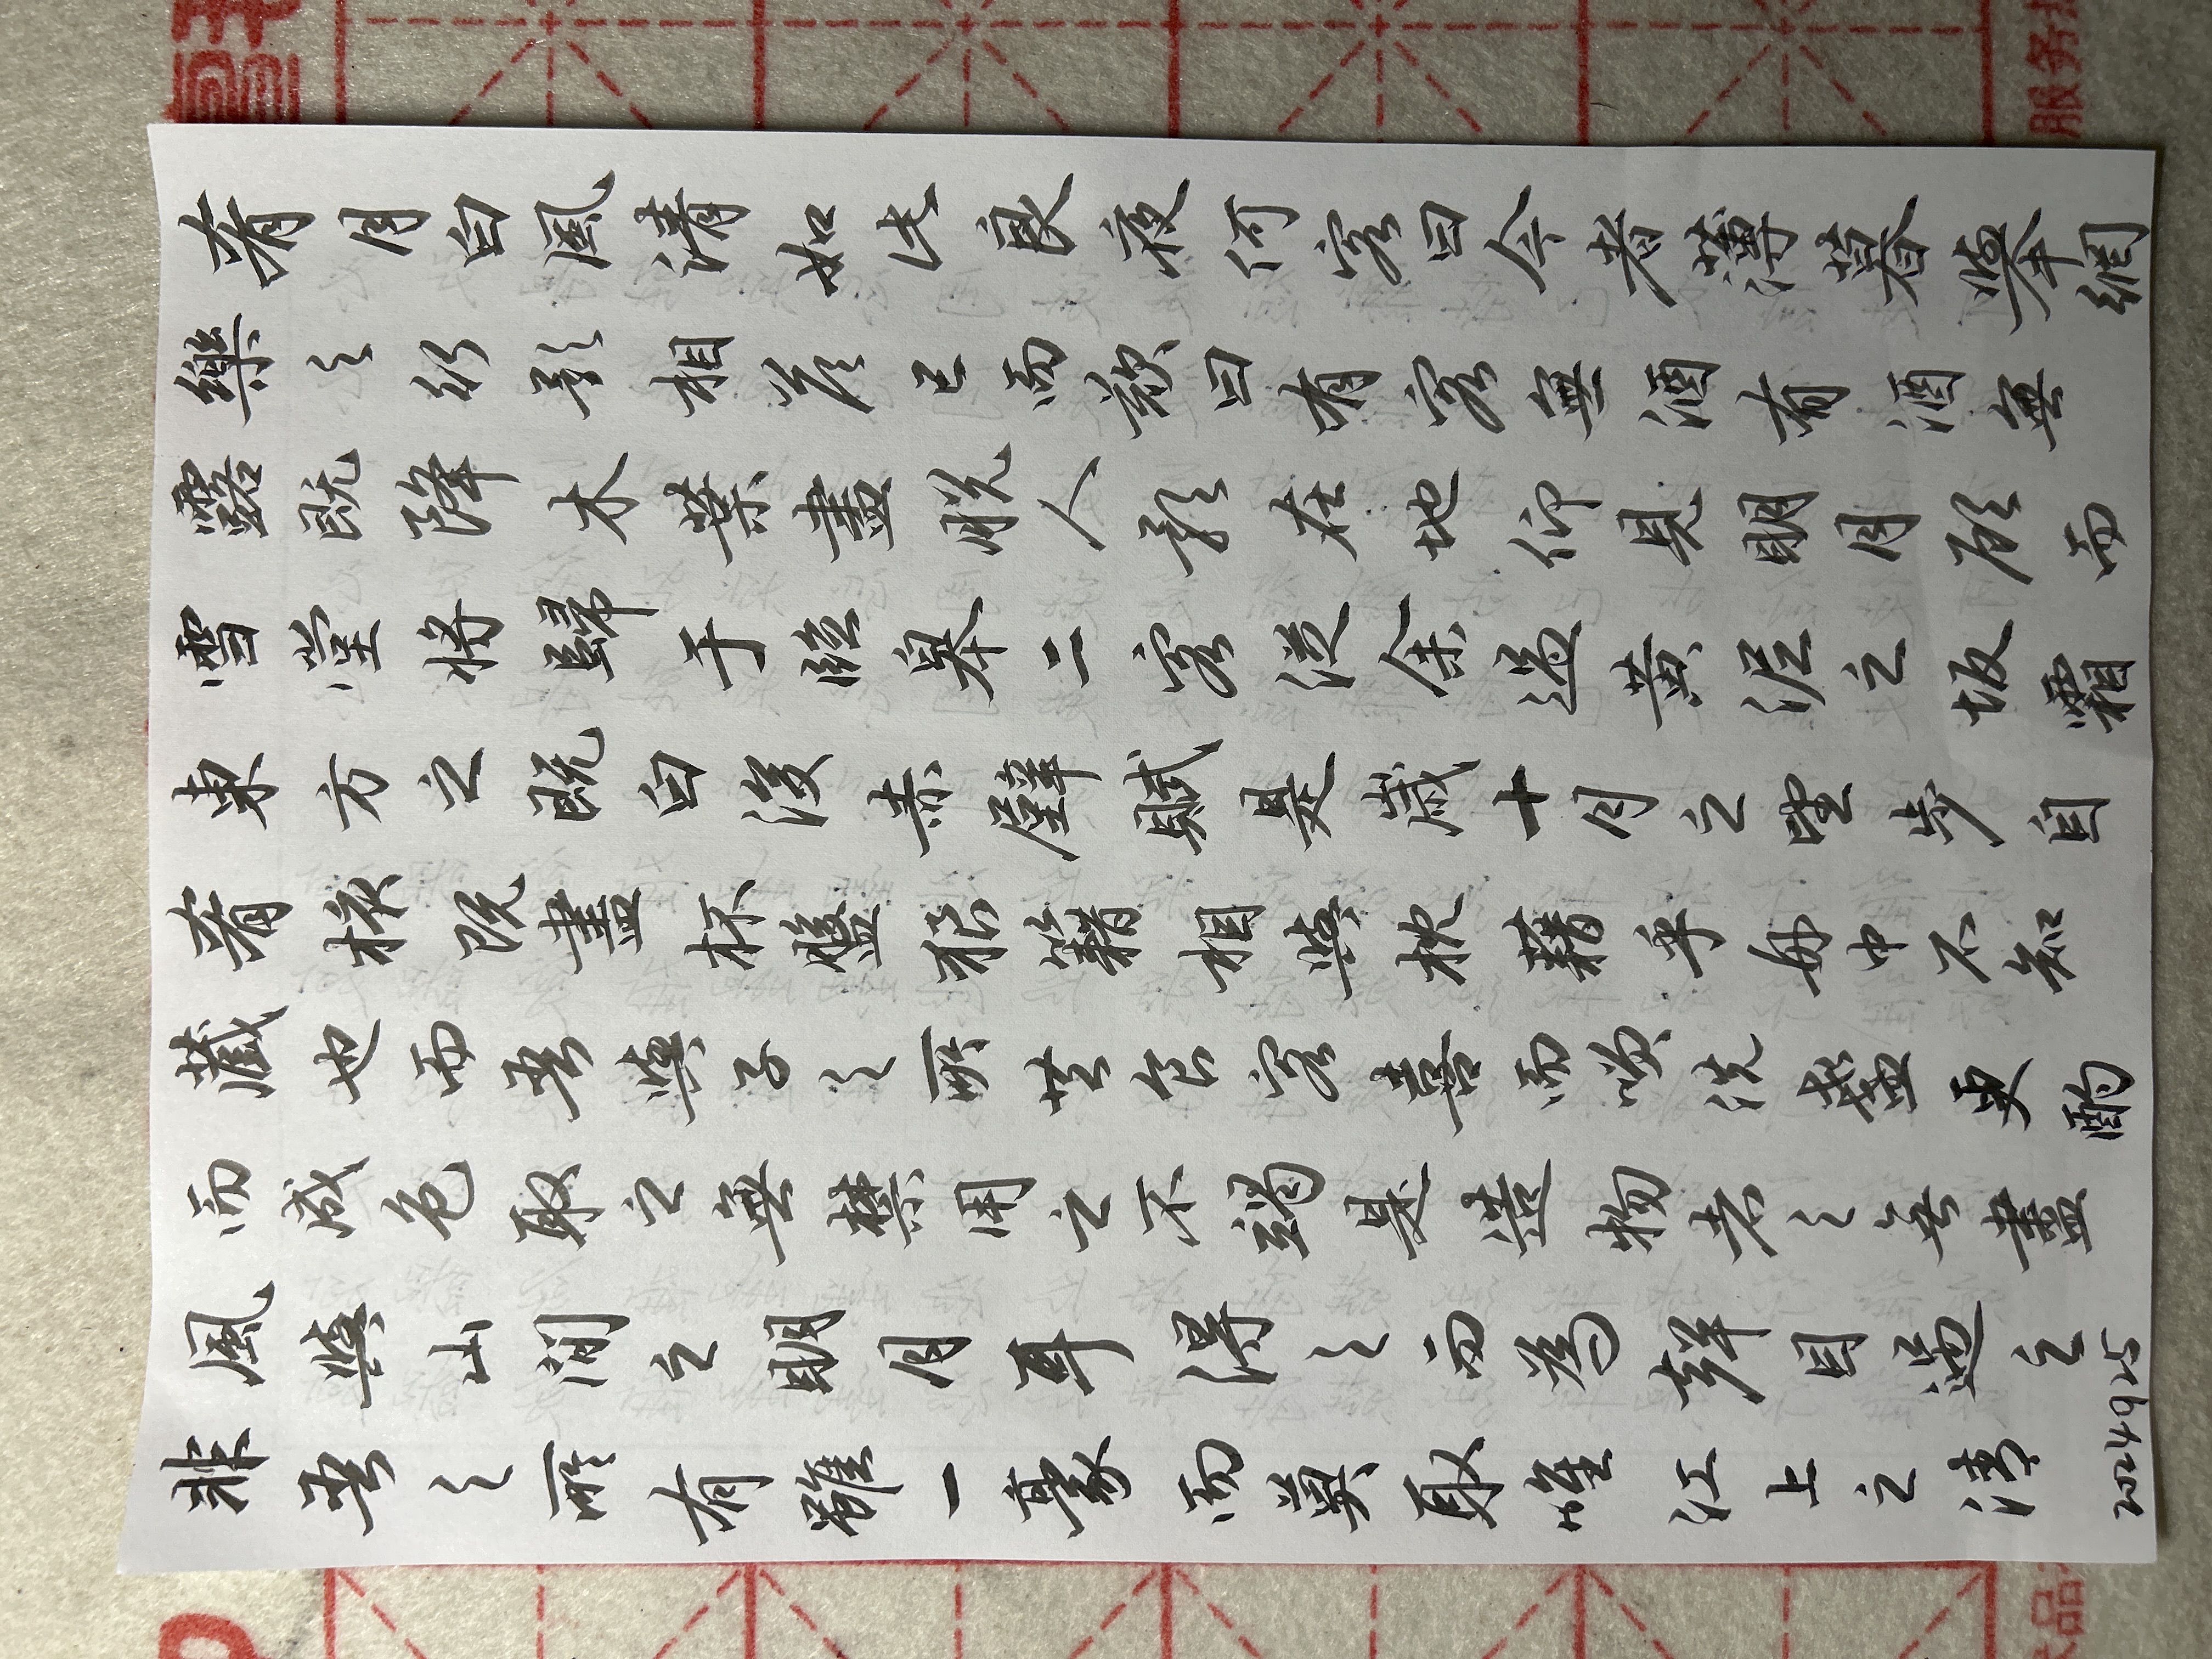 非吾之所有雖一豪而莫取唯江上之清
風與山間之明月耳得之而為聲目遇之
而成色取之無禁用之不竭是造物者之無盡
藏也而吾與子之所共食客喜而笑洗盞更酌
肴核既盡杯盤狼籍相與枕藉乎舟中不知
東方之既白後赤壁賦是歲十月之望步自
雪堂將歸于臨皋二客從余過黃泥之坂霜
露既降木葉盡脫人影在地仰見明月顧而
樂之行歌相答已而歎曰有客無酒有酒無
肴月白風清如此良夜何客曰今者薄暮舉網
2024 9 25
品
服务